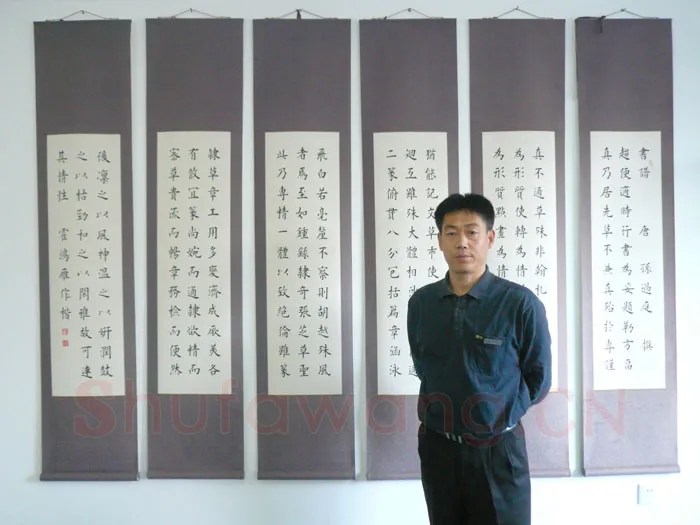 書譜 唐 孫過庭 撰
趨便適時行書為要題勒方畐
真乃居先草不兼真殆於專謹
真不通草殊非翰札
為形質使轉為情
為形質點畫為情
猶能記文草乖使
迴互雖殊大體相涉 通
二篆俯貫八分包括篇章涵泳
飛白若毫釐不察則胡越殊風
者焉至如鍾繇隸奇張芝草聖
此乃專情一體以致絕倫雖篆
隸草章工用多變濟成厥美各
有攸宜篆尚婉而通隸欲精而
密草貴流而暢章務檢而便然
後凜之以風神溫之以妍潤鼓
之以枯勁和之以閑雅故可達
其情性 霍鴻雁作楷
Shufawang.CN